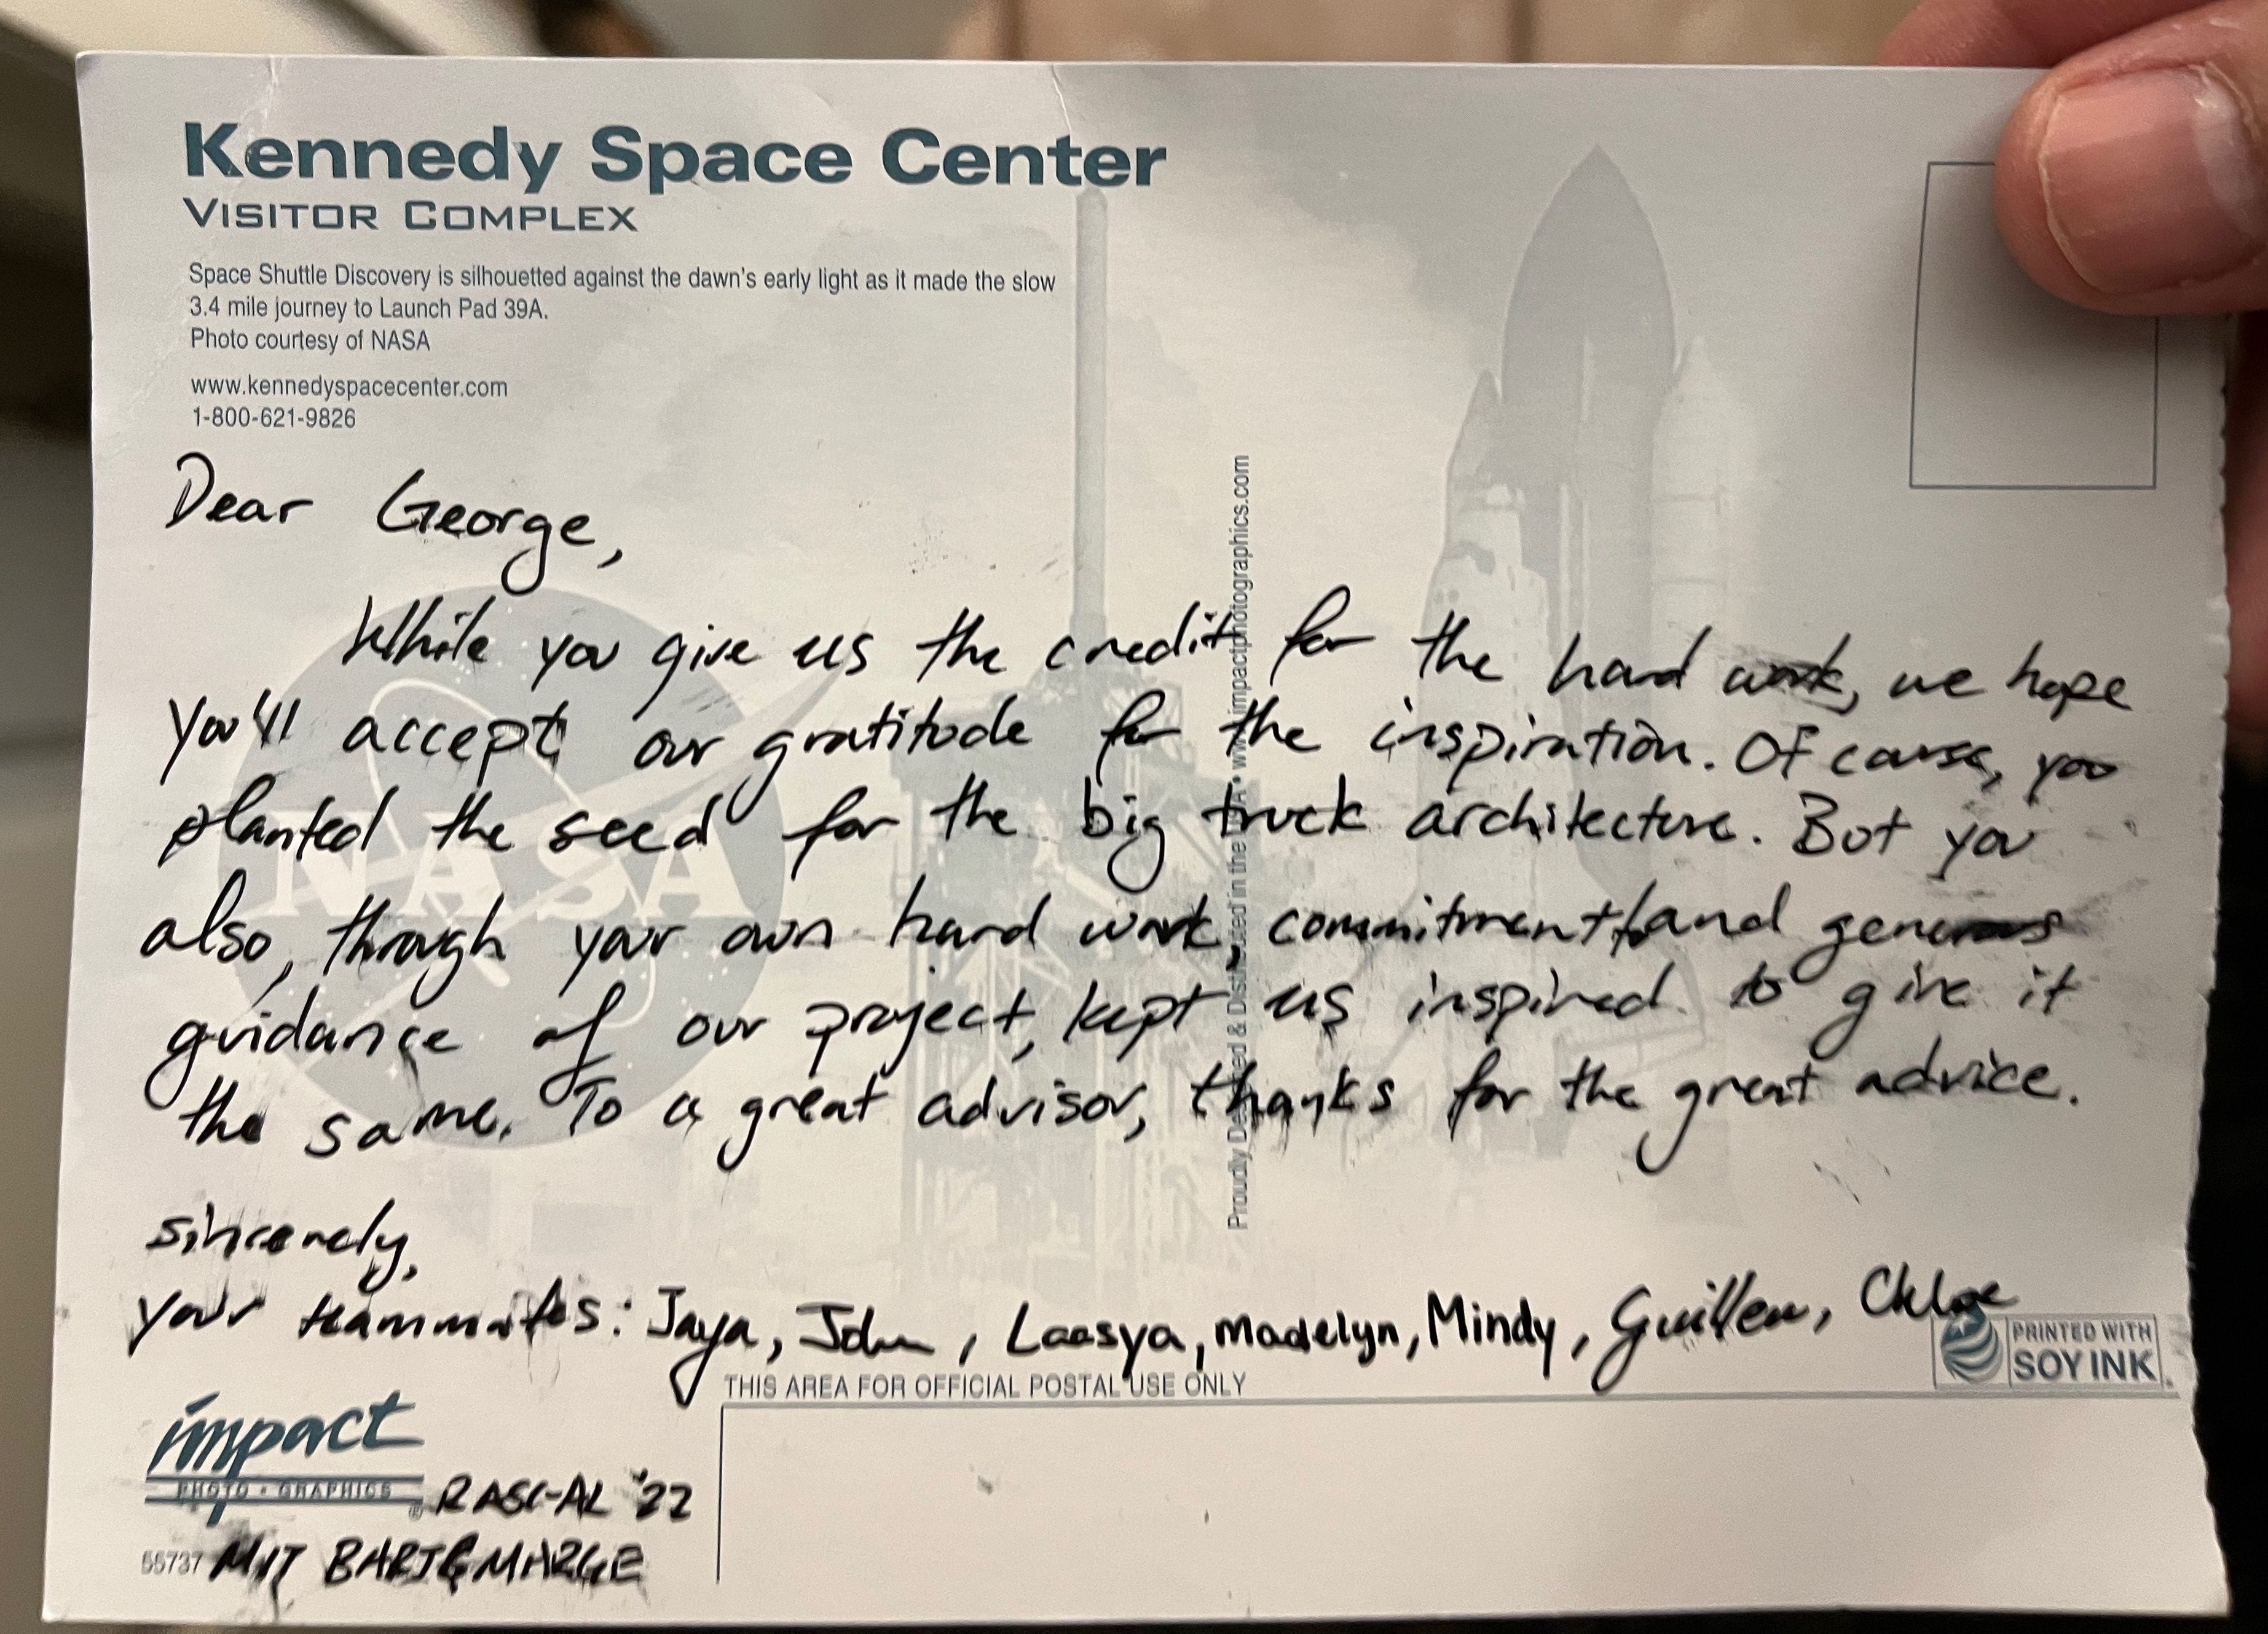 Kennedy Space Center
VISITOR COMPLEX
Space Shuttle Discovery is silhouetted against the dawn's early light as it made the slow
3.4 mile journey to Launch Pad 39A.
Photo courtesy of NASA
www.kennedyspacecenter.com
1-800-621-9826
Dear George,
While you give us the credit for the hard work, we hope
you'll accept our gratitude for the inspiration. Of course, you
planted the seed for the big truck architecture. But you
also, through your own hard work, commitment, and generous
guidance of our project, kept us inspired to give it
the same. To a great advisor, thanks for the great advice.
sincerely,
your teammates: Jaya, John, Laasya, Madelyn, Mindy, Guillem, Chloe
NASA
Proudly Designed & Distributed in the USA • www.impactphotographics.com
PRINTED WITH
SOY INK
THIS AREA FOR OFFICIAL POSTAL USE ONLY
impact
PHOTO • GRAPHICS
RASC-AL '22
55737 MIT BART&MARGE